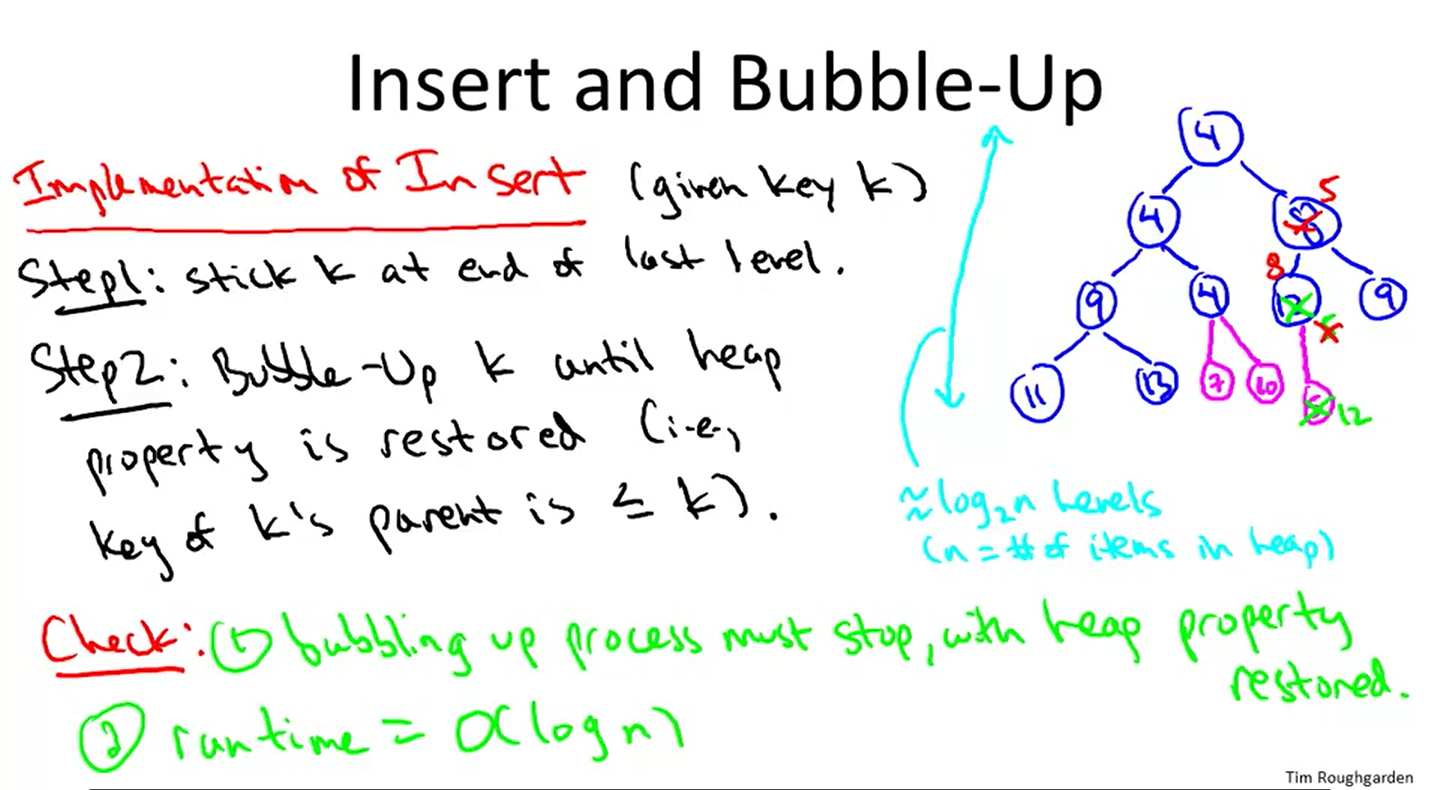 Insert and Bubble-Up
Implementation of Insert (given key k)
Step1: stick k at end of last level.
Step2: Bubble-Up k until heap
property is restored (i.e.,
key of k's parent is ≤ k).
4
4
5
8
9
4
9
11
13
7
10
12
≈ log₂n levels
(n = # of items in heap)
Check: ① bubbling up process must stop, with heap property
restored.
② runtime = O(log n)
Tim Roughgarden